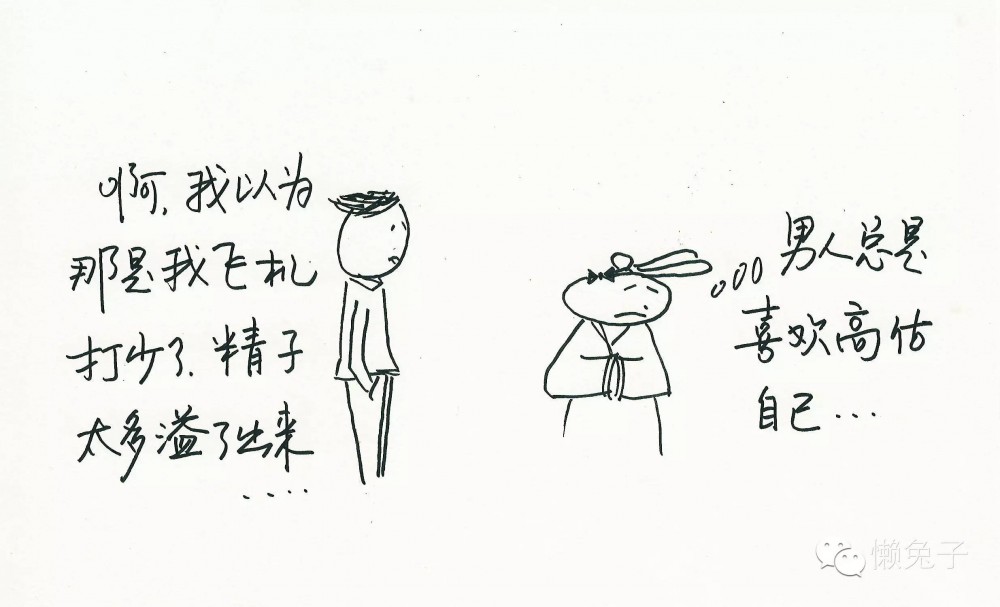 啊,我以为
那是我飞机
打少了,精子
太多溢了出来
....
男人总是
喜欢高估
自己...
懒兔子